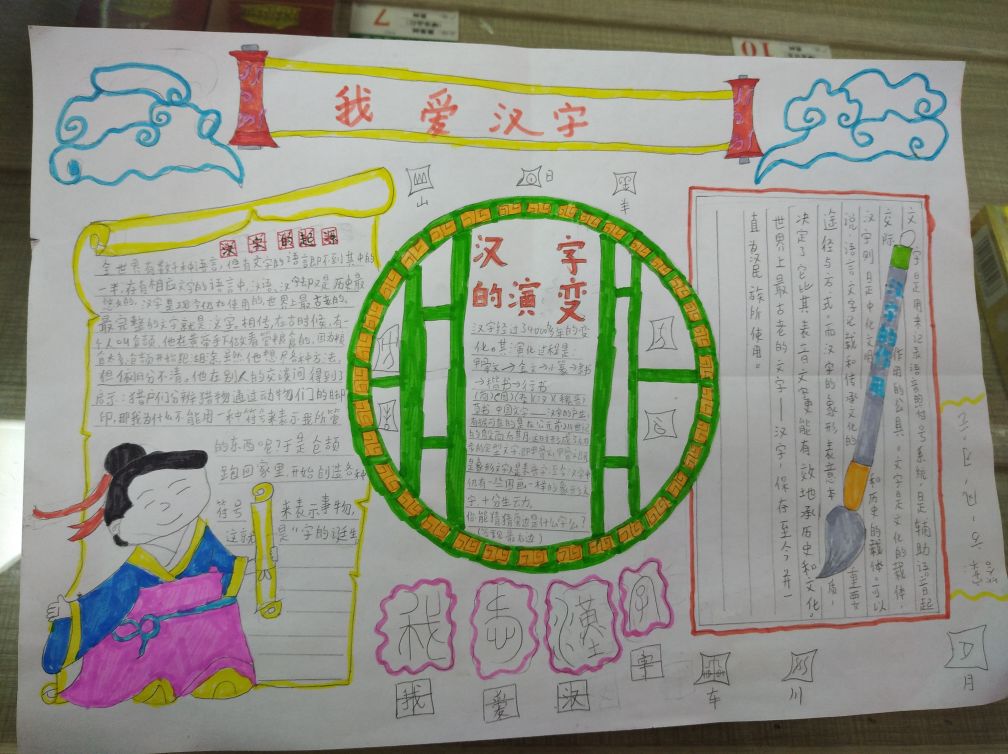 我爱汉字
山
日
羊
汉字的起源
全世界有数千种语言,但有文字的语言却不到其中的
一半,在有相应文字的语言中,汉语、汉字却又是历史最
悠久的。汉字是现今仍在使用的世界上最古老的、
最完整的文字就是汉字。相传,在古时候,有一
个人叫仓颉,他在黄帝手下做着管粮食的,因为粮
食太多,仓颉开始犯
虽然他想尽各种方法,
但依旧分不清。他在别人的交谈间得到了
启示:猎户们分辨猎物通过动物们的脚
印,那我为什么不能用一种符号来表示我所管
的东西呢?于是仓颉
跑回家里开始创造各种
符号 来表示事物,
这就 是“字的诞生
汉字
的演变
汉字经过3400多年的变
化。其演化过程是:
甲骨文→金文→小篆→隶书
→楷书→行书
你能猜猜旁边是什么字么?
文字是用来记录语言的符号系统,是辅助语言起
交际作用的工具。文字是文化的载体,
汉字则是中化文明和历史的载体。可以
说:语言文字记载和传承文化的重要
途径与方式。而汉字的象形表意本质,
决定了它比其表音文字更能有效地承历史和文化。
世界上最古老的文字——汉字,保存至今,并一
直为汉民族所使用。
汉字的作用
我
爱
汉
字
我
爱
汉
字
车
川
月